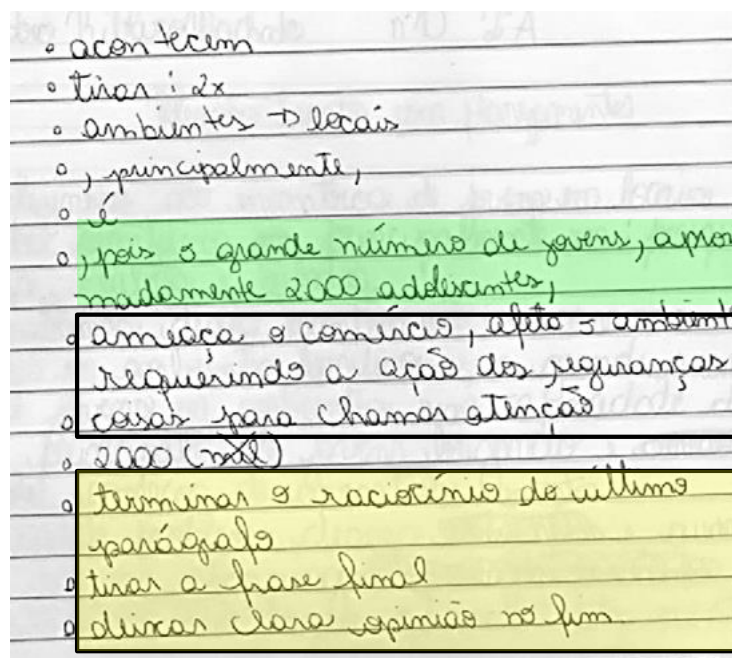 • acontecem
• tirar: 2x
• ambientes → locais
• , principalmente,
• é
• , pois o grande número de jovens, apro
madamente 2000 adolescentes,
• ameaça o comércio, afeta o ambient
requerindo a ação dos seguranças
• coisas para chamar atenção
• 2000 (mil)
• terminar o raciocínio do último
parágrafo
• tirar a frase final
• deixar clara opinião no fim.